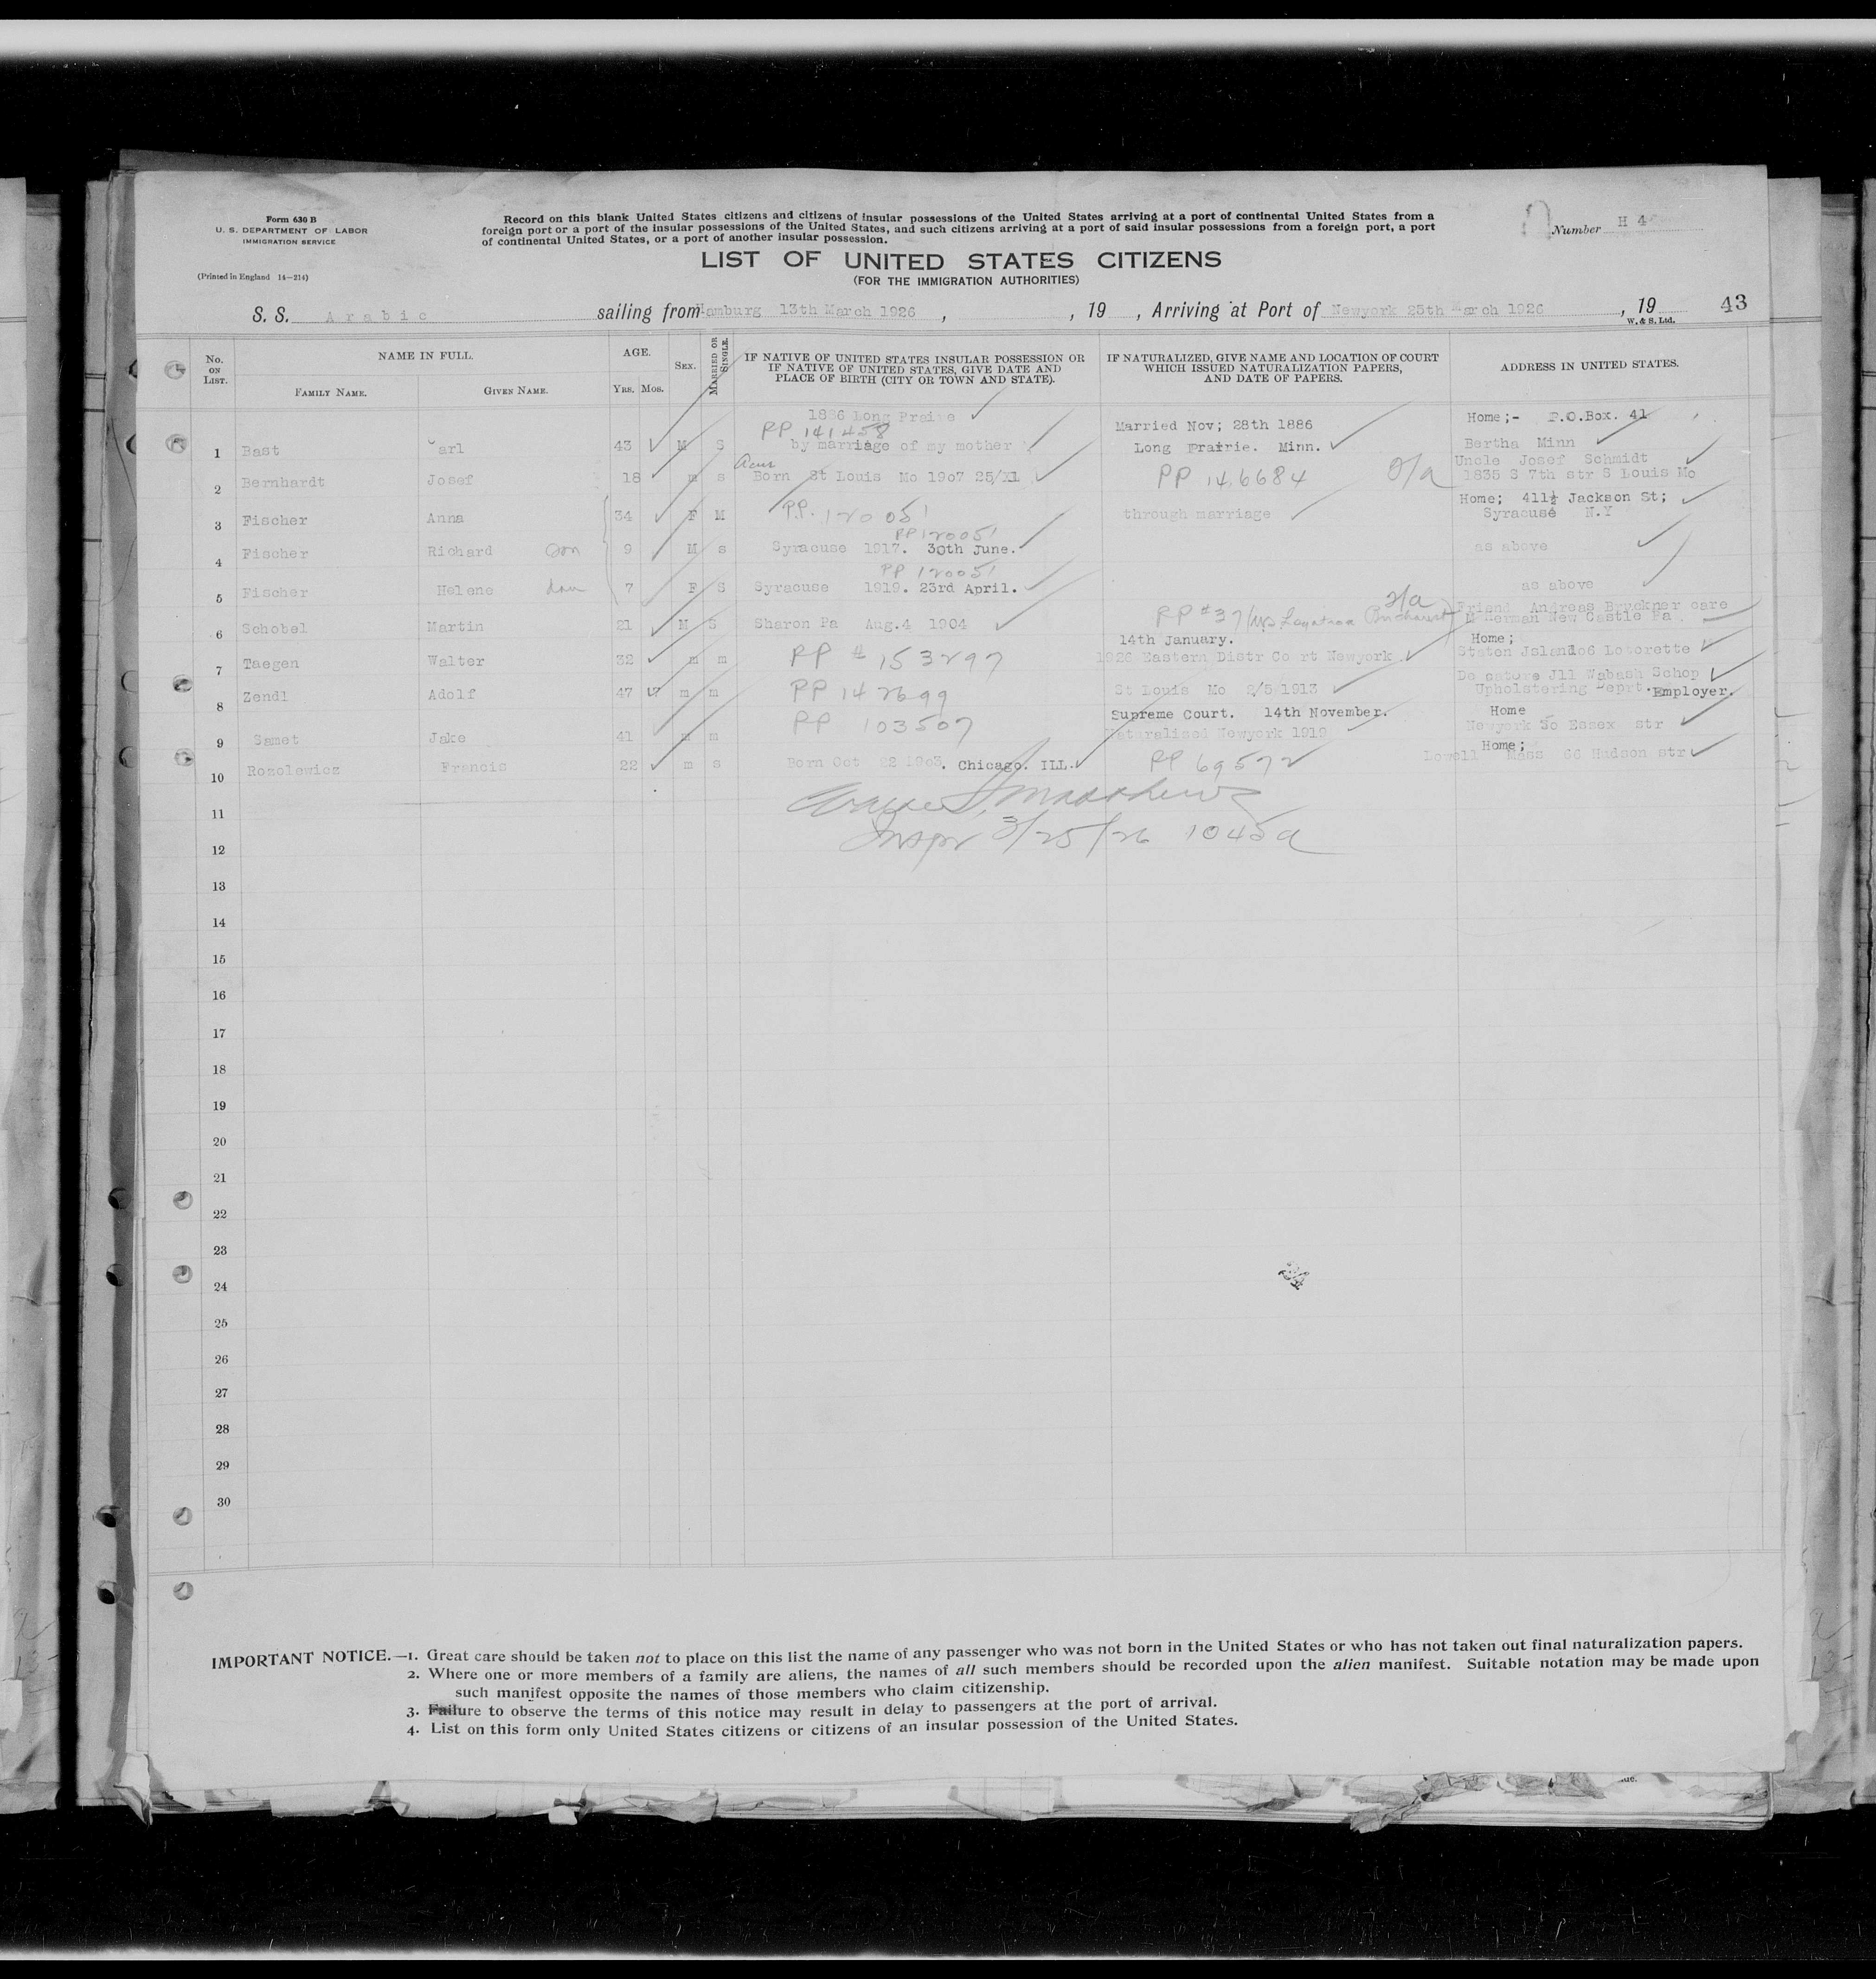 Form 630 B
U. S. DEPARTMENT OF LABOR
IMMIGRATION SERVICE
(Printed in England 14—214)
Record on this blank United States citizens and citizens of insular possessions of the United States arriving at a port of continental United States from a
foreign port or a port of the insular possessions of the United States, and such citizens arriving at a port of said insular possessions from a foreign port, a port
of continental United States, or a port of another insular possession.
Number H 4
LIST OF UNITED STATES CITIZENS
(FOR THE IMMIGRATION AUTHORITIES)
S. S. Arabic sailing from Hamburg 13th March 1926 , , 19 , Arriving at Port of Newyork 25th March 1926 , 19 43
W. & S. Ltd.
No. ON LIST.
NAME IN FULL.
FAMILY NAME. GIVEN NAME.
AGE.
YRS. MOS.
SEX.
MARRIED OR SINGLE.
IF NATIVE OF UNITED STATES INSULAR POSSESSION OR
IF NATIVE OF UNITED STATES, GIVE DATE AND
PLACE OF BIRTH (CITY OR TOWN AND STATE).
IF NATURALIZED, GIVE NAME AND LOCATION OF COURT
WHICH ISSUED NATURALIZATION PAPERS,
AND DATE OF PAPERS.
ADDRESS IN UNITED STATES.
1886 Long Praive Married Nov; 28th 1886 Home;- P.O.Box. 41
PP 141458
1 Bast Carl 43 M S by marriage of my mother Long Prairie. Minn. Bertha Minn
Uncle Josef Schmidt
2 Bernhardt Josef 18 m s Born St Louis Mo 1907 25/XI PP 146684 1835 S 7th str S Louis Mo
Home; 411½ Jackson St;
3 Fischer Anna 34 F M PP. 120051 through marriage Syracuse N.Y
PP 120051
4 Fischer Richard son 9 M s Syracuse 1917. 30th June. as above
PP 120051
5 Fischer Helene dau 7 F S Syracuse 1919. 23rd April. as above
Friend Andreas Bruckner care
6 Schobel Martin 21 M S Sharon Pa Aug.4 1904 PP #37 Herman New Castle Pa.
14th January. Home;
7 Taegen Walter 32 m m PP # 153297 1926 Eastern Distr Co rt Newyork Staten Jsland
Wabash Schop
8 Zendl Adolf 47 m m PP 142699 St Louis Mo 2/5 1913 Upholstering Deprt. Employer.
Supreme Court. 14th November. Home
9 Samet Jake 41 m m PP 103507 Naturalised Newyork 1919 Newyork 50 Essex str
Home;
10 Rozolewicz Francis 22 m s Born Oct 22 1903. Chicago. ILL. PP 69572 Lowell Mass 66 Hudson str
11
Inspr 3/25/26 1045a
12
13
14
15
16
17
18
19
20
21
22
23
24
25
26
27
28
29
30
IMPORTANT NOTICE.—1. Great care should be taken not to place on this list the name of any passenger who was not born in the United States or who has not taken out final naturalization papers.
2. Where one or more members of a family are aliens, the names of all such members should be recorded upon the alien manifest. Suitable notation may be made upon
such manifest opposite the names of those members who claim citizenship.
3. Failure to observe the terms of this notice may result in delay to passengers at the port of arrival.
4. List on this form only United States citizens or citizens of an insular possession of the United States.